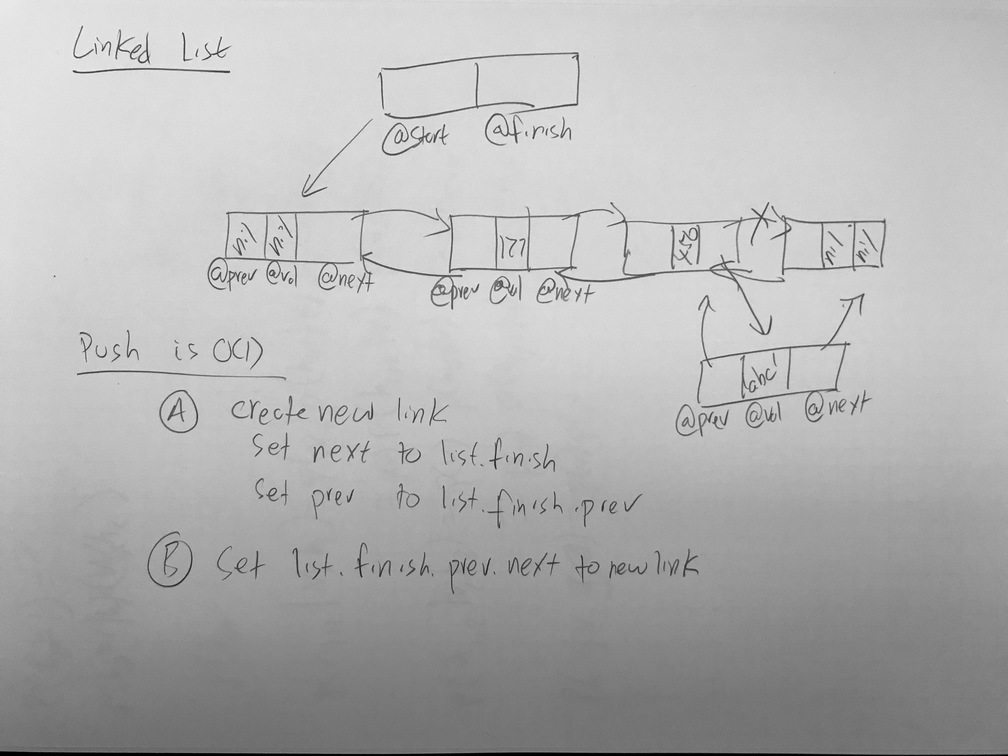 Linked List
@start @finish
nil nil
@prev @val @next
177
@prev @val @next
nil nil
'abc'
@prev @val @next
Push is O(1)
A create new link
set next to list.finish
set prev to list.finish.prev
B set list.finish.prev.next to new link